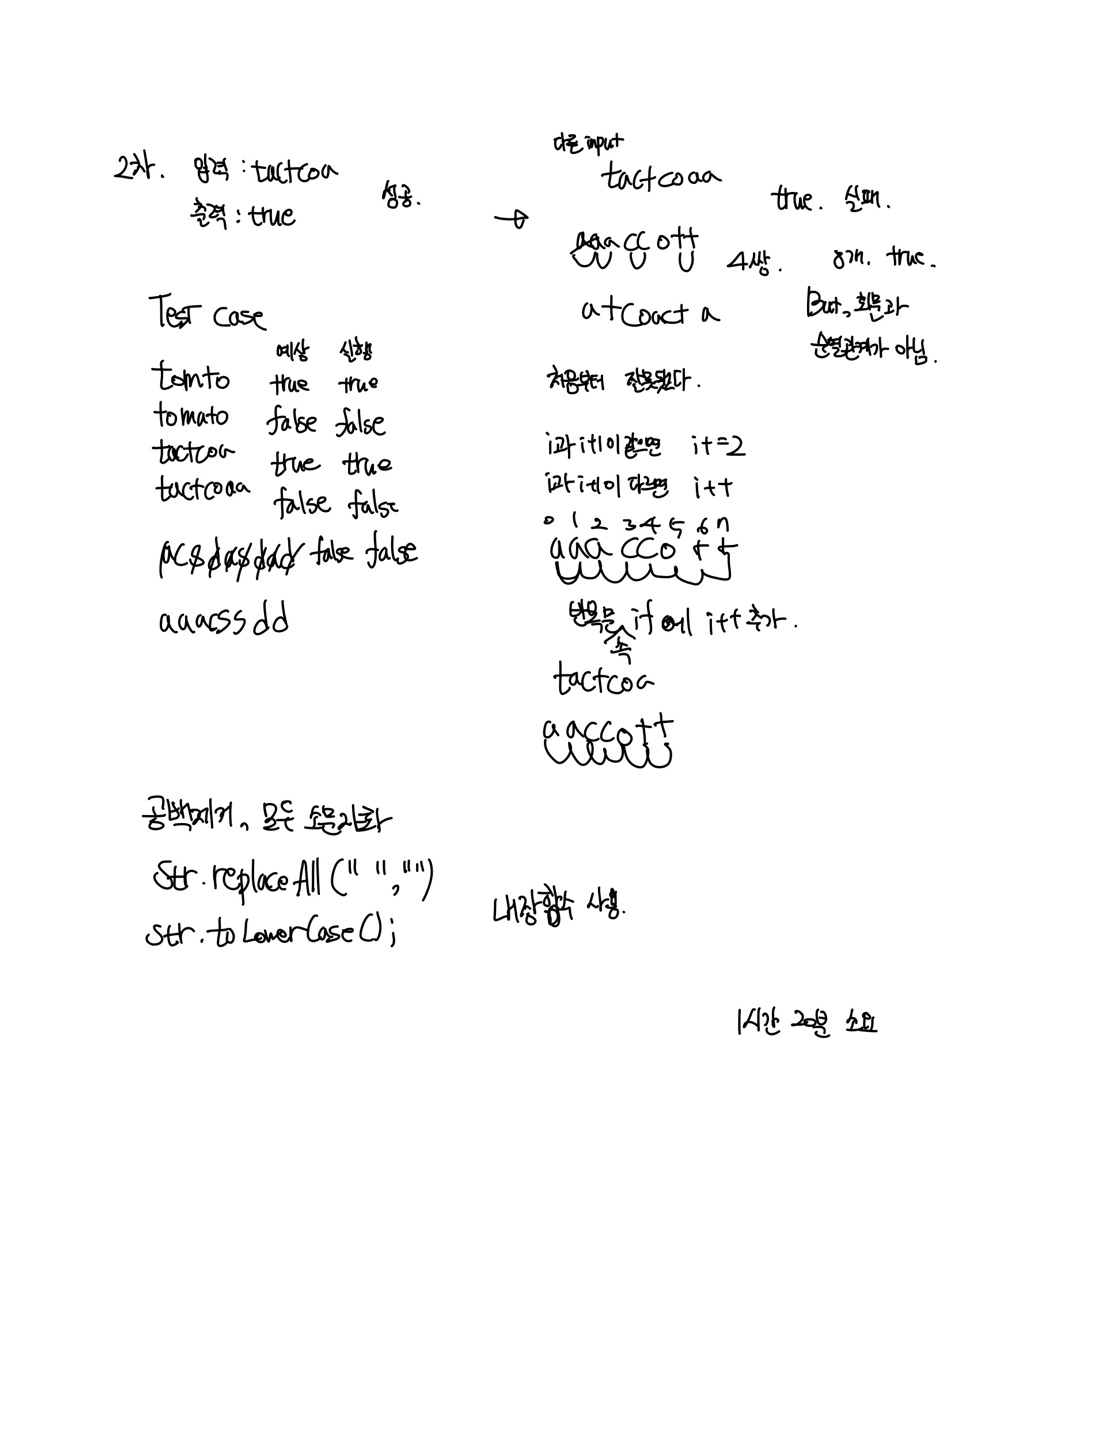 2차. 입력 : tactcoa
출력 : true
성공.
Test case
예상 실행
tomto true true
tomato false false
tactcoa true true
tactcoaa false false
acsdasdad false false
aaacssdd
공백제거, 모두 소문자화
Str.replaceAll(" ","")
str.toLowerCase();
내장함수 사용.
→
다른 input
tactcoaa
true. 실패.
aaaccott
4쌍. 8개. true.
atcoact a
But, 회문과
순열관계가 아님.
처음부터 잘못됐다.
i과 i+1이 같으면 i+=2
i과 i+1이 다르면 i++
0 1 2 3 4 5 6 7
aaaccott
반복문 속 if에 i++ 추가.
tactcoa
aaccott
1시간 20분 소요